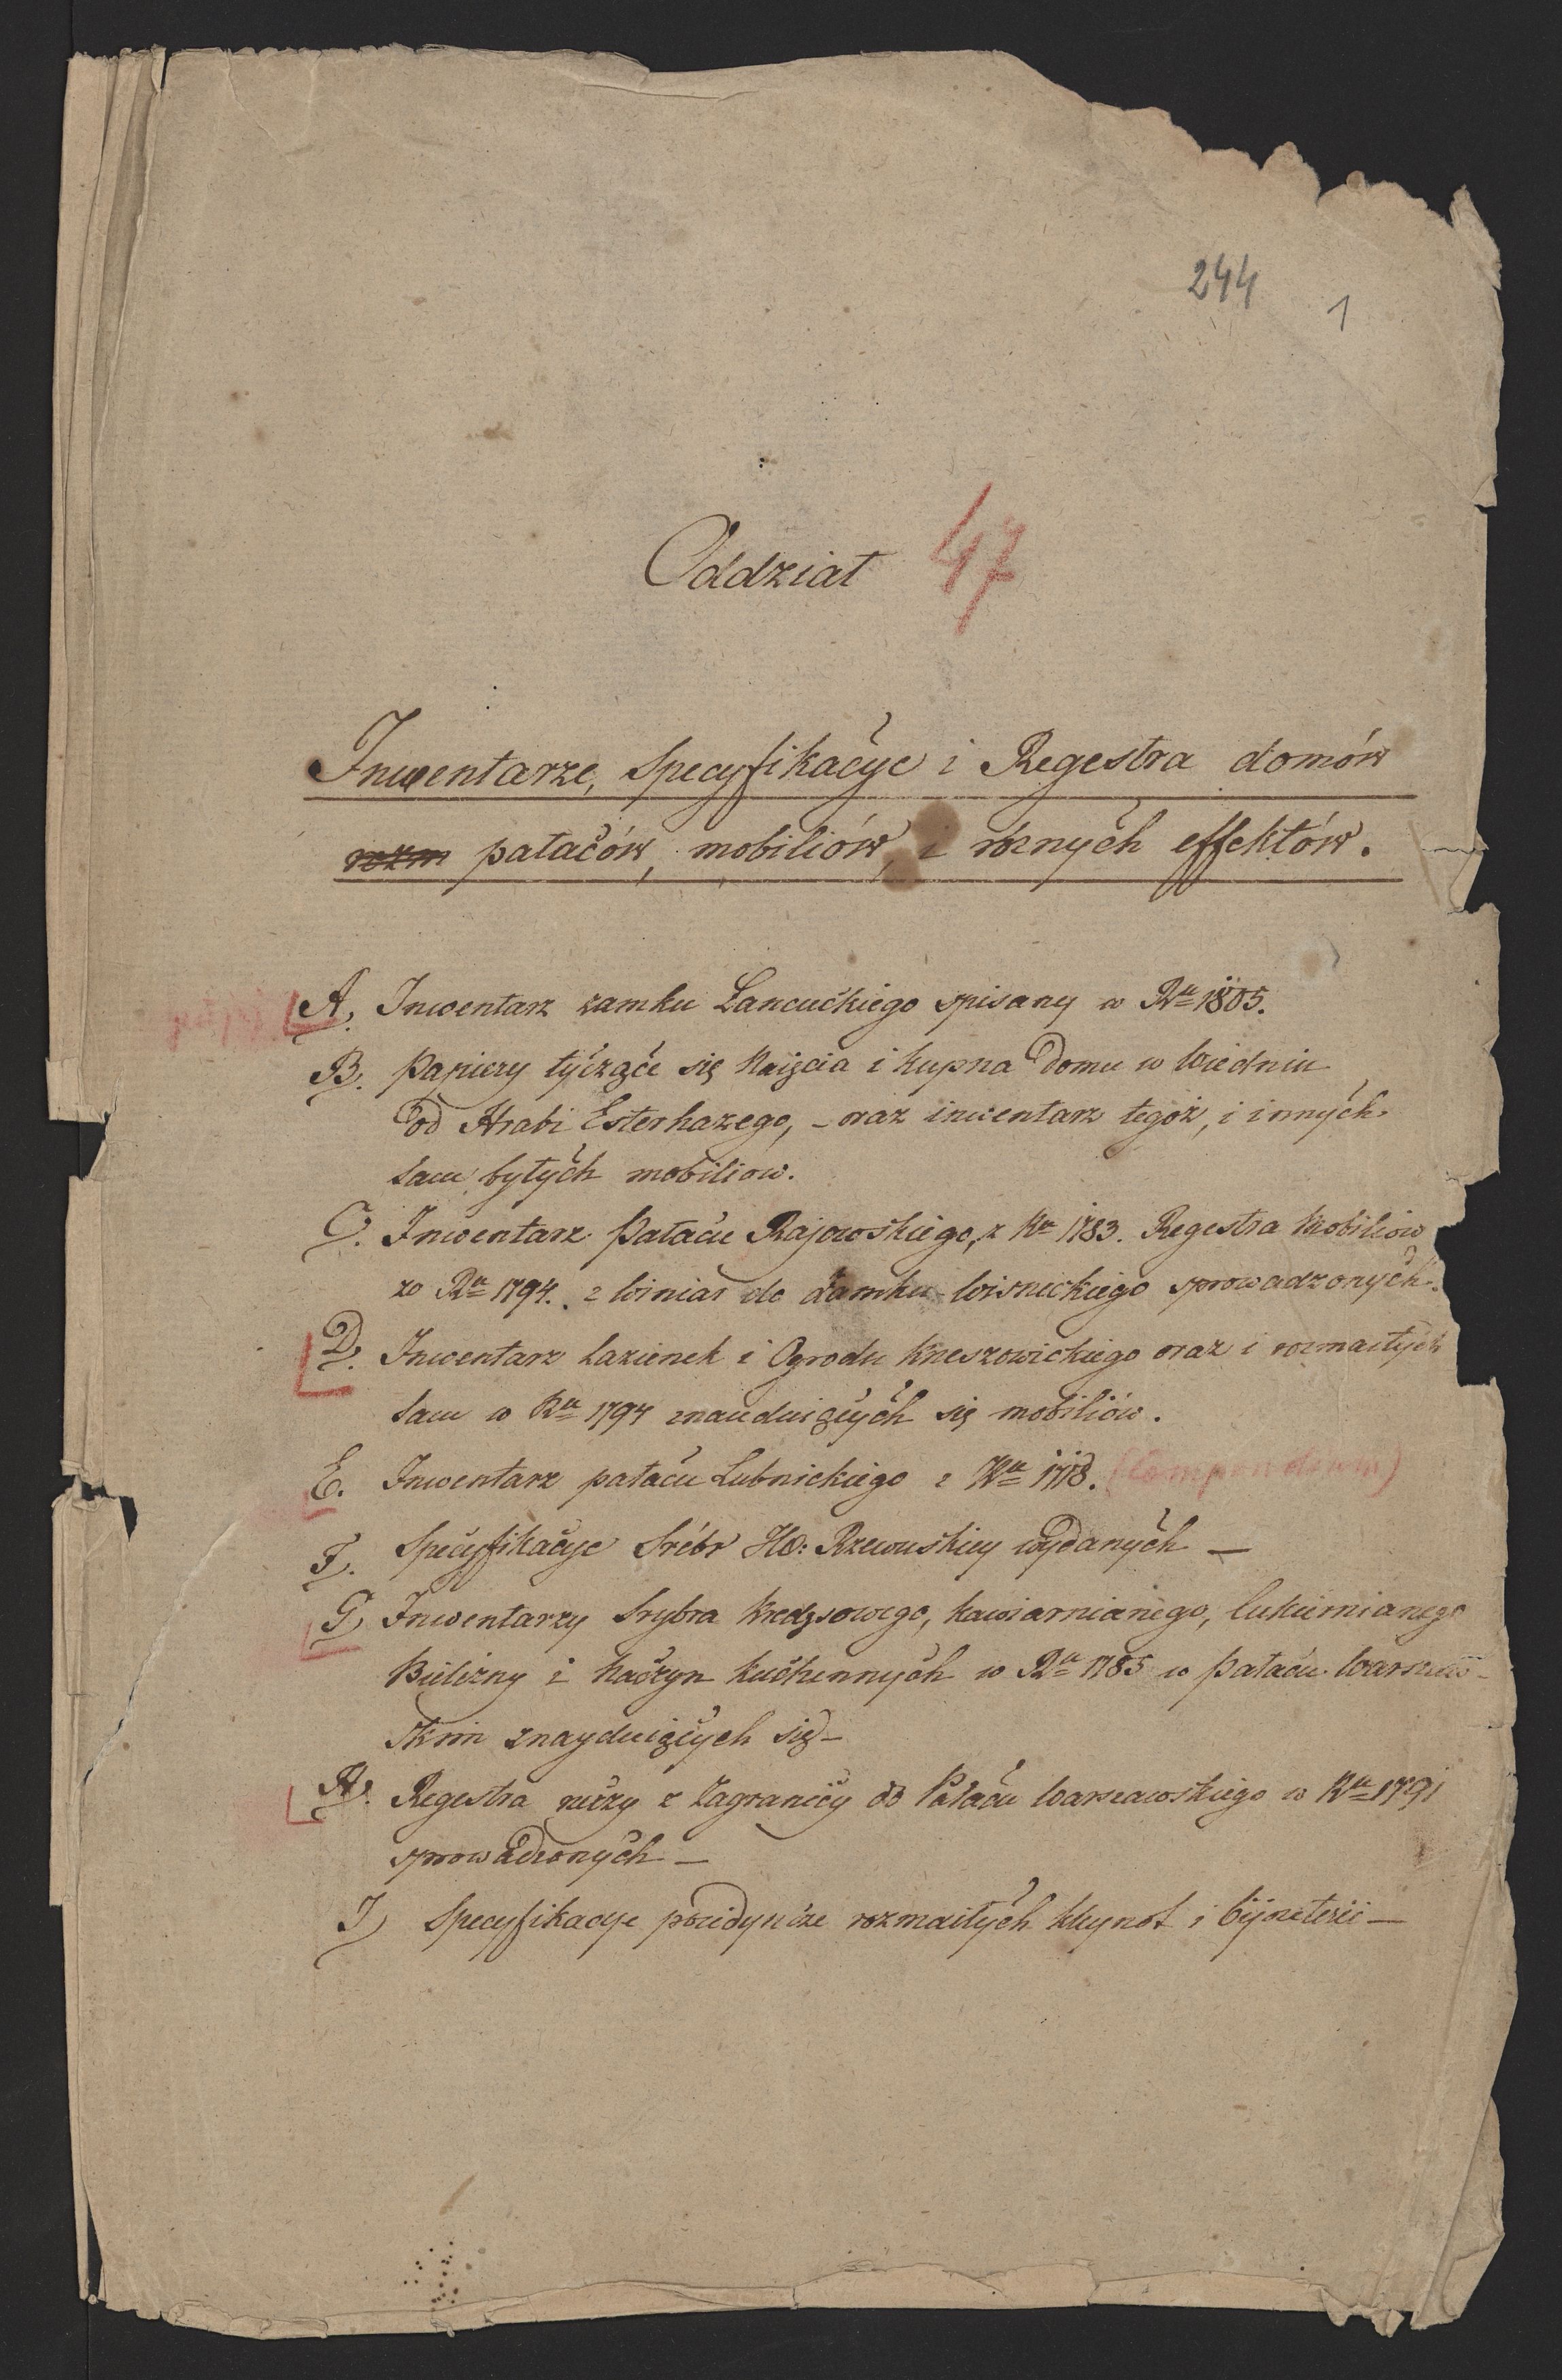 244
1
Oddział 47
Inwentarze, specyfikacye i Regestra domów
pałaców, mobiliów, i róznych effektów.
A. Inwentarz zamku Lancuckiego spisany w Rku 1805.
B. Papiery tyczące się Naięcia i kupna Domu w Wiedniu
od Hrabi Esterhazego, - oraz inwentarz tegoż, i innych
tam byłych mobiliow.
C. Inwentarz Pałacu Rajowskiego, z Rku 1783. Regestra Mobiliow
zo Rku 1794. z Winiar do Zamku Wisnickiego sprowadzonych.
D. Inwentarz Łazienek i Ogrodu Krzeszowickiego oraz i rozmaitych
tam w Rku 1794 znayduiących się mobiliów.
E. Inwentarz pałacu Łubnickiego z Rku 1778. (Compendium)
F. Specyfikacye Srébr JW: Rzewuskiey wydanych —
G) Inwentarzy Srybra Kredęsowego, kawiarnianego, Cukiernianego
Bielizny i Naczyn kuchennych w Rku 1785 w Pałacu Warszaw-
skim znayduiących się -
H. Regestra rzeczy z Zagranicy do Pałacu Warszawskiego w Rku 1791
sprowadzonych —
I) Specyfikacye poiedyncze rozmaitych kleynot i bijouterii —